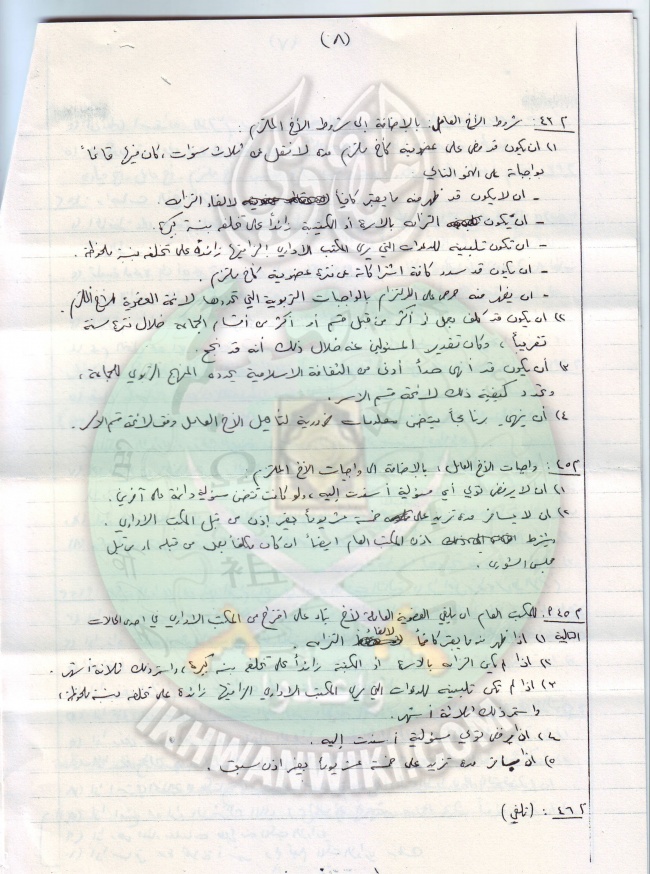 (٨)
م٤٢: شروط الأخ العامل: بالإضافة إلى شروط الأخ الملتزم:
١) أن يكون قد مضى على عضويته كأخ ملتزم مدة لا تقل عن ثلاث سنوات، كان فيها قائماً
بواجباته على النحو التالي
- أن لا يكون قد ظهر منه ما يعتبر كافياً لإلغاء التزامه.
- أن يكون التزامه بالأسرة أو الكتيبة زائداً على تخلفه بنسبة كبيرة.
- أن تكون تلبيته للدعوات التي يرى المكتب الإداري إلزاميتها زائدة على تخلفه بنسبة ملحوظة.
- أن يكون قد سدد كافة اشتراكاته عن فترة عضويته كأخ ملتزم.
- أن يظهر منه حرص على الالتزام بالواجبات التربوية التي تحددها لائحة العضوية للأخ الملتزم.
٢) أن يكون قد كلف بعمل أو أكثر من قبل قسم أو أكثر من أقسام الجماعة خلال فترة سنة
تقريباً، وكان تقدير المسئولين عنه خلال ذلك أنه قد نجح.
٣) أن يكون قد أنهى حداً أدنى من الثقافة الإسلامية يحدده المنهج التربوي للجماعة،
وتحدد كيفية ذلك لائحة قسم الأسر.
٤) أن ينهي برنامجاً يتضمن معلومات ضرورية لتأهيل الأخ العامل وفق لائحة قسم الأسر.
م٢٥: واجبات الأخ العامل: بالإضافة إلى واجبات الأخ الملتزم:
١) أن لا يرفض تولي أي مسؤولية أسندت إليه، ولو كانت تتضمن مسؤولية دائمة على آخرين.
٢) أن لا يسافر مدة تزيد على خمسة عشر يوماً بغير إذن من قبل المكتب الإداري.
ويشترط إذن المكتب العام أيضاً إن كان مكلفاً بعمل من قبله أو من قبل
مجلس الشورى.
م٤٥: للمكتب العام أن يلغي العضوية العاملة للأخ بناء على اقتراح من المكتب الإداري في إحدى الحالات
التالية ١) إذا ظهر منه ما يعتبر كافياً لإلغاء التزامه.
٢) إذا لم يكن التزامه بالأسرة أو الكتيبة زائداً على تخلفه بنسبة كبيرة، واستمر ذلك ثلاثة أشهر.
٣) إذا لم تكن تلبيته للدعوات التي يرى المكتب الإداري إلزاميتها زائدة على تخلفه بنسبة ملحوظة،
واستمر ذلك ثلاثة أشهر.
٤) أن يرفض تولي مسؤولية أسندت إليه.
٥) أن يسافر مدة تزيد على خمسة عشر يوماً بغير إذن مسبق.
م٤٦: (تلغى)
واعدوا
IKHWANWIKI.COM